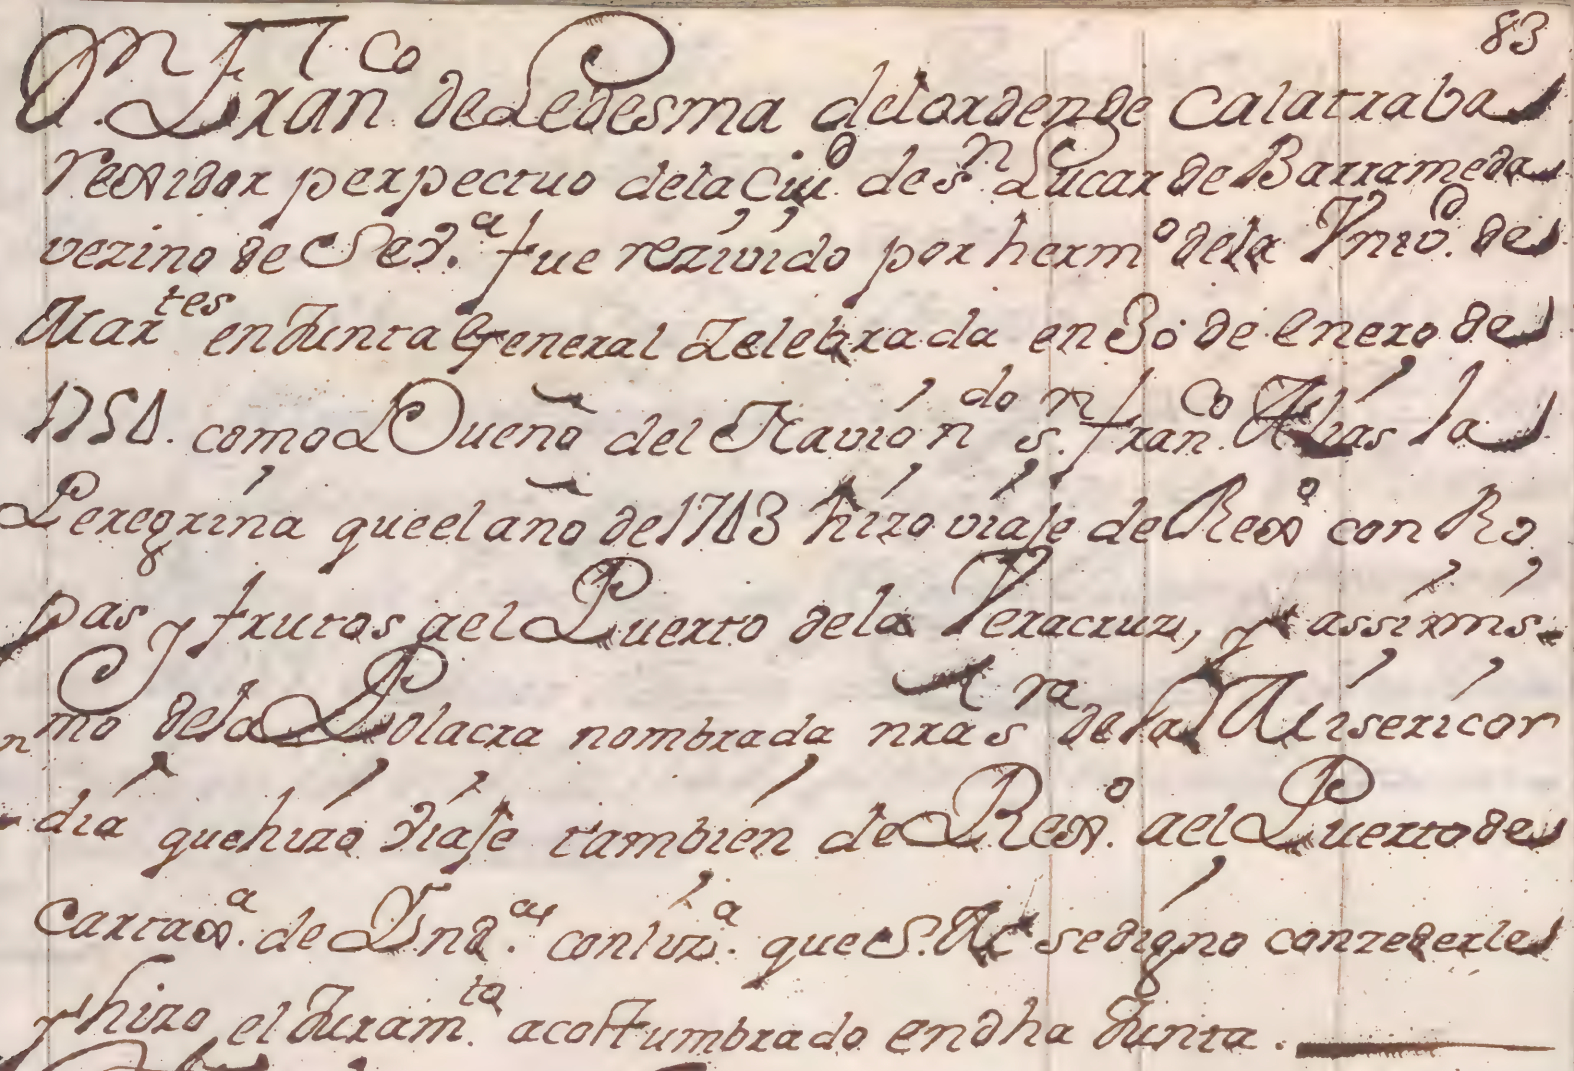 83
Dn Franco de Ledesma del orden de Calatraba
rexidor perpectuo dela Ciud. de Sn. Lucar de Barrameda
vezino de Seva. fue rezivido por hermo dela Univd. de
Martes en Junta General Zelebrada en 30 de Enero de
como Dueño del Navio ndo. Sn. Franco. Alias la
Peregrina que el año de 1713 hizo viaje de Rexo con Ro
pas y frutos ael Puerto dela Veracruz, y assimis-
mo dela Polacra nombrada nra Sra de la Misericor
dia que hizo viaje tambien de Rexo. ael Puerto de
Cartaxa. de Indas. con liza. que S. M. se digno conzederle
y hizo el Juramto. acostumbrado en dha Junta.